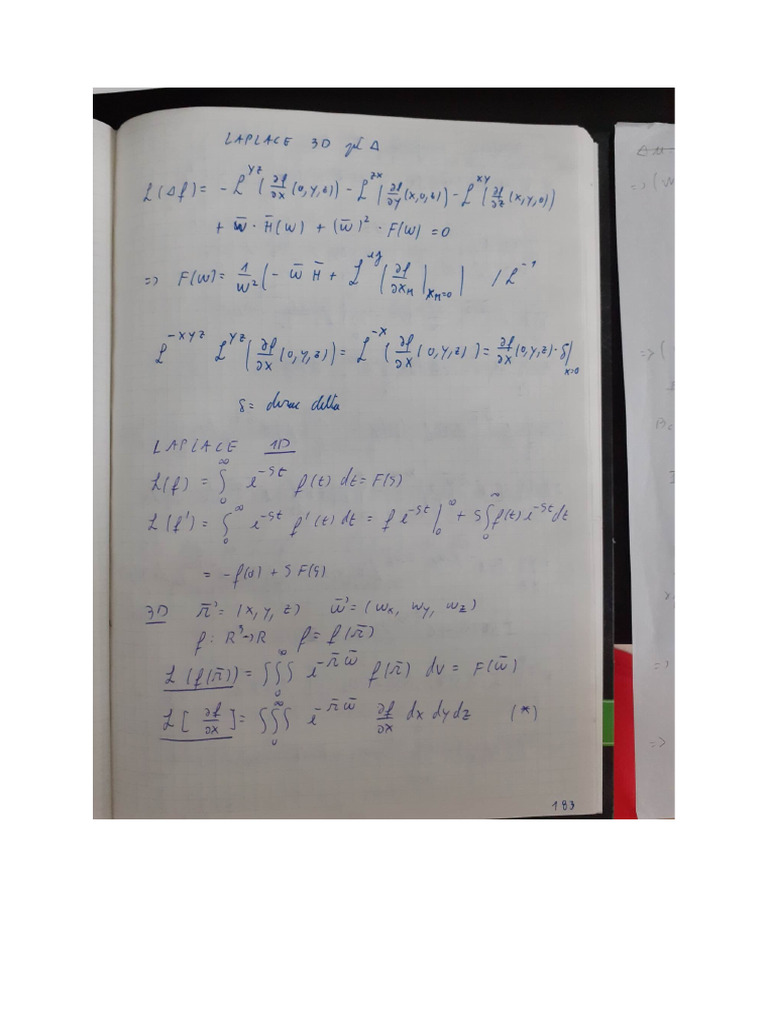 LAPLACE 3D Δ
L(Δf) = - L^{yz}(∂f/∂x (0,y,z)) - L^{zx}(∂f/∂y (x,0,z)) - L^{xy}(∂f/∂z (x,y,0))
+ w̄ · H̄(w) + (w̄)² · F(w) = 0
=> F(w) = 1/w² (- w̄ H̄ + L (∂f/∂x_M |_{x_M=0}) /L^{-1}
L^{-xyz} L^{yz}(∂f/∂x (0,y,z)) = L^{-x}(∂f/∂x (0,y,z)) = ∂f/∂x (0,y,z) · δ|_{x=0}
δ = dirac delta
LAPLACE 1D
L(f) = ∫_0^∞ e^{-st} f(t) dt = F(s)
L(f') = ∫_0^∞ e^{-st} f'(t) dt = f e^{-st}|_0^∞ + s∫_0^∞ f(t) e^{-st} dt
= -f(0) + s F(s)
3D r̄ = (x, y, z) w̄ = (w_x, w_y, w_z)
f: R³→R f = f(r̄)
L(f(r̄)) = ∫∫∫_0^∞ e^{-r̄ w̄} f(r̄) dv = F(w̄)
L[∂f/∂x] = ∫∫∫_0^∞ e^{-r̄ w̄} ∂f/∂x dx dy dz (*)
183